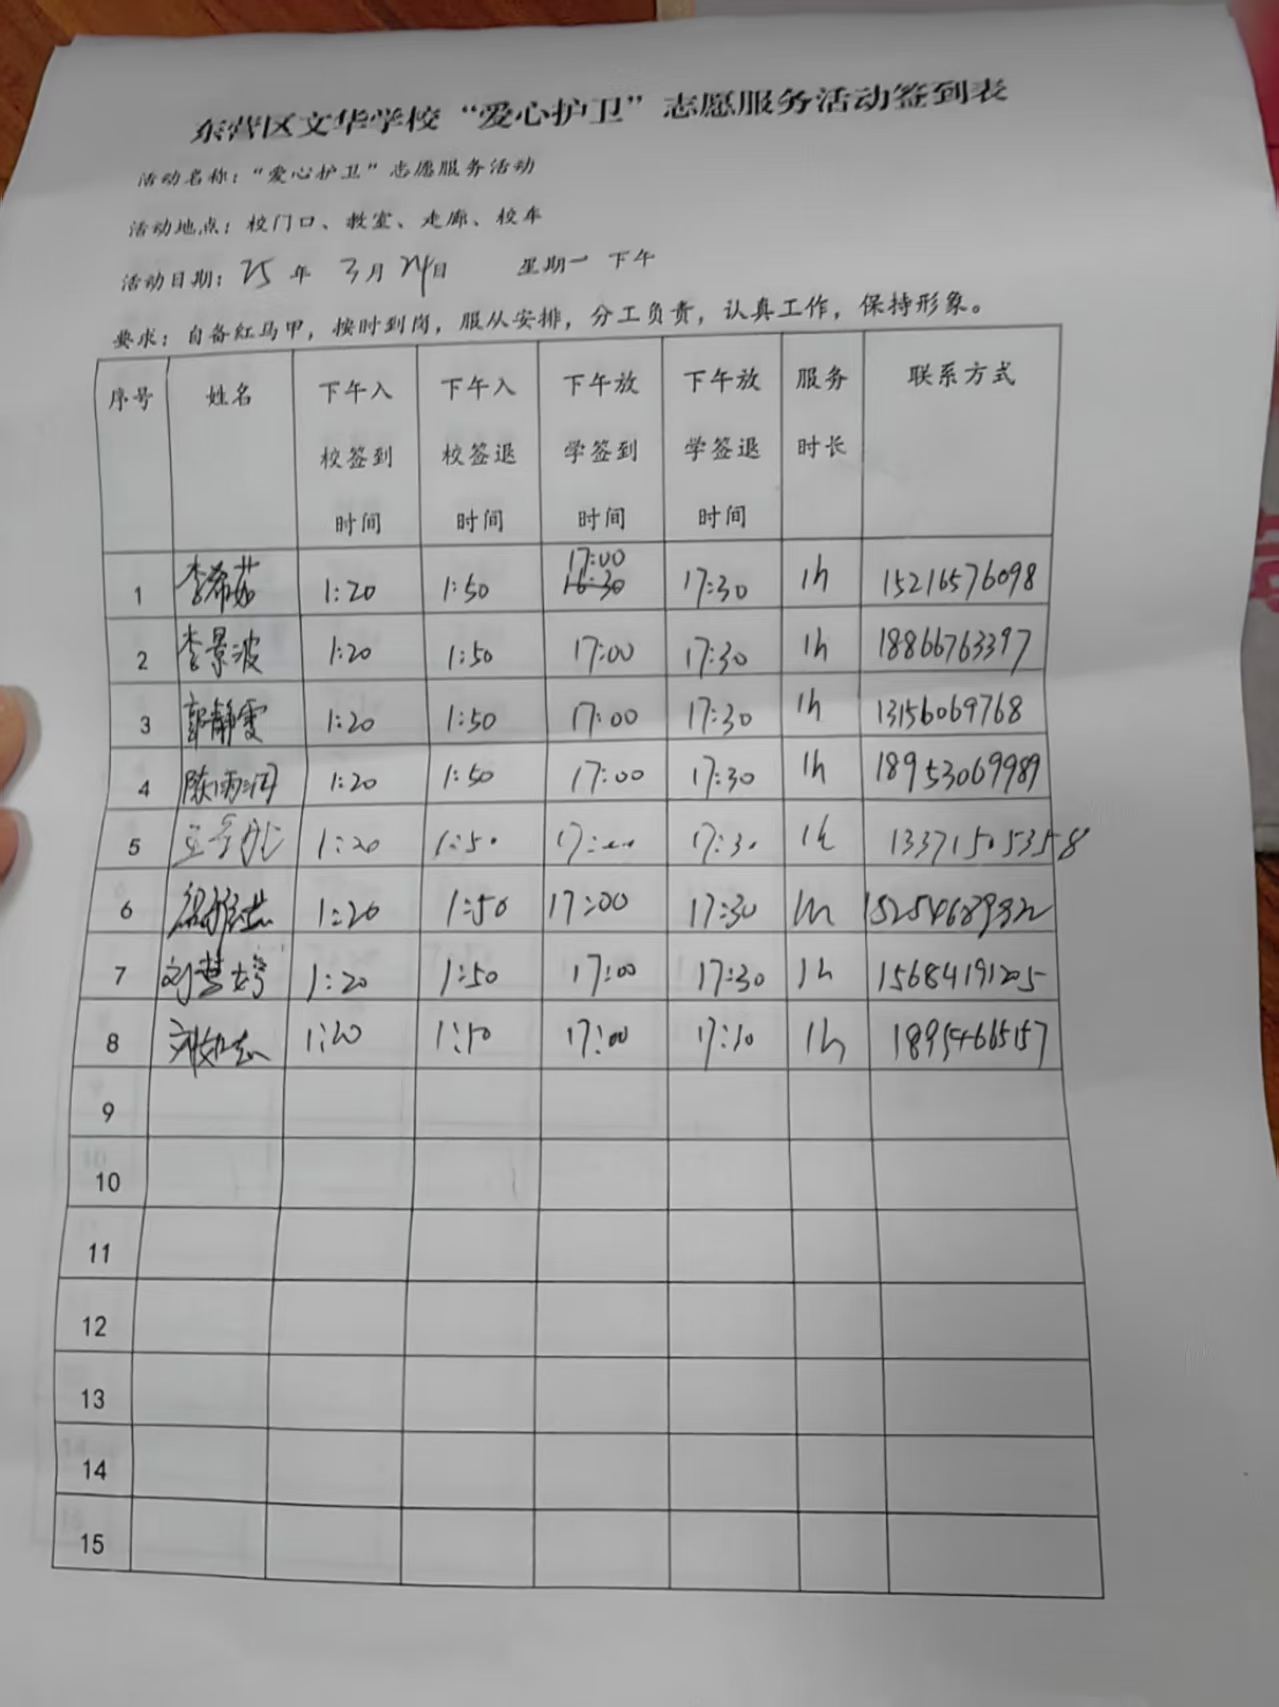 东营区文华学校“爱心护卫”志愿服务活动签到表
活动名称：“爱心护卫”志愿服务活动
活动地点：校门口、教室、走廊、校车
活动日期：25年 3月24日 星期一 下午
要求：自备红马甲，按时到岗，服从安排，分工负责，认真工作，保持形象。
序号 姓名 下午入校签到时间 下午入校签退时间 下午放学签到时间 下午放学签退时间 服务时长 联系方式
1 李希茹 1:20 1:50 17:00 17:30 1h 15216576098
2 李景波 1:20 1:50 17:00 17:30 1h 18866763397
3 郭静雯 1:20 1:50 17:00 17:30 1h 13156069768
4 1:20 1:50 17:00 17:30 1h 18953069989
5 1:20 1:50 17:00 17:30 1h 13371505358
6 1:20 1:50 17:00 17:30 1h
7 刘慧婷 1:20 1:50 17:00 17:30 1h 15684191205
8 1:20 1:50 17:00 17:30 1h
9
10
11
12
13
14
15